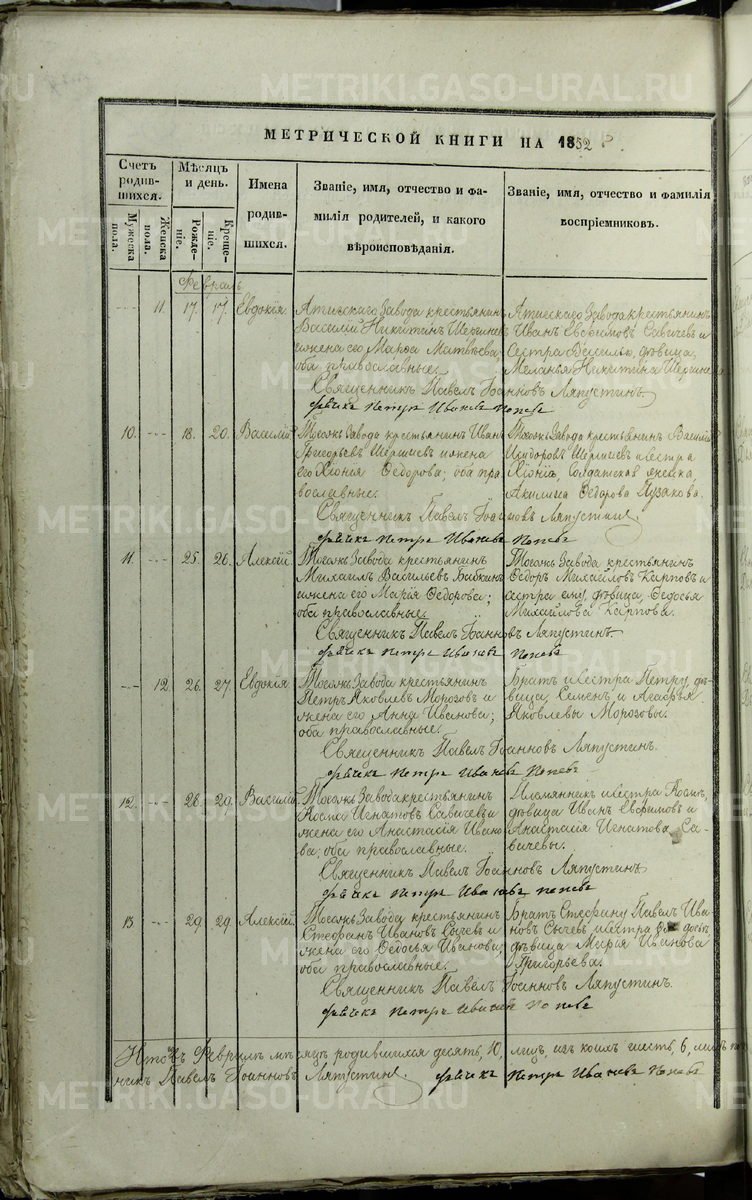 МЕТРИЧЕСКОЙ КНИГИ НА 1852
Счетъ родившихся.
Мужеска пола.
Женска пола.
Мѣсяцъ и день.
Рожденіе.
Крещеніе.
Имена родившихся.
Званіе, имя, отчество и фамилія родителей, и какого вѣроисповѣданія.
Званіе, имя, отчество и фамилія воспріемниковъ.
Февраль
11. 17. 17. Евдокія.
Атигскаго Завода крестьянинъ
Василій Никитинъ
и жена его Марѳа Матвѣева;
оба православные.
Атигскаго Завода крестьянинъ
Иванъ Евфимовъ Савичевъ и
Сестра Василью, дѣвица,
Меланья Никитина
Священникъ Павелъ Іоанновъ Ляпустинъ
Дьячекъ Петръ Ивановъ Поповъ
10. 18. 20. Василій
Тогожъ Завода крестьянинъ Иванъ
Григорьевъ и жена
его Хіонія Ѳедорова; оба пра
вославные.
Тогожъ Завода крестьянинъ Василій
Исидоровъ и сестра
Хіоніи, Солдатская женка,
Акилина Ѳедорова Пузакова.
Священникъ Павелъ Іоанновъ Ляпустинъ
Дьячекъ Петръ Ивановъ Поповъ
11. 25. 26. Алексій.
Тогожъ Завода крестьянинъ
Михаилъ Васильевъ
и жена его Марія Ѳедорова;
оба православные.
Тогожъ Завода крестьянинъ
Ѳедоръ Михайловъ Карповъ и
сестра ему, дѣвица, Ѳедосья
Михайлова Карпова.
Священникъ Павелъ Іоанновъ Ляпустинъ.
Дьячекъ Петръ Ивановъ Поповъ
12. 26. 27. Евдокія.
Тогожъ Завода крестьянинъ
Петръ Яковлевъ Морозовъ и
жена его Анна Иванова;
оба православные.
Братъ и сестра Петру, дѣ-
вица, Семенъ и Агафья
Яковлевы Морозовы.
Священникъ Павелъ Іоанновъ Ляпустинъ.
Дьячекъ Петръ Ивановъ Поповъ
12. 28. 29. Василій.
Тогожъ Завода крестьянинъ
Косма Игнатовъ Савичевъ и
жена его Анастасія Ивано
ва; оба православные.
Племянникъ и сестра Космѣ,
дѣвица Иванъ Евфимовъ и
Анастасія Игнатова Са-
вичевы.
Священникъ Павелъ Іоанновъ Ляпустинъ
Дьячекъ Петръ Ивановъ Поповъ
13 29 29 Алексій.
Тогожъ Завода крестьянинъ
Стефанъ Ивановъ Сычевъ и
жена его Ѳедосья Иванова;
оба православные.
Братъ Стефану Павелъ Ива
новъ Сычевъ и сестра
дѣвица Марія Иванова
Григорьева.
Священникъ Павелъ Іоанновъ Ляпустинъ.
Дьячекъ Петръ Ивановъ Поповъ
Итого въ Февралѣ мѣсяцѣ родившихся десять, 10, лицъ, изъ коихъ шесть, 6,
никъ Павелъ Іоанновъ Ляпустинъ. Дьячекъ Петръ Ивановъ Поповъ
METRIKI.GASO-URAL.RU